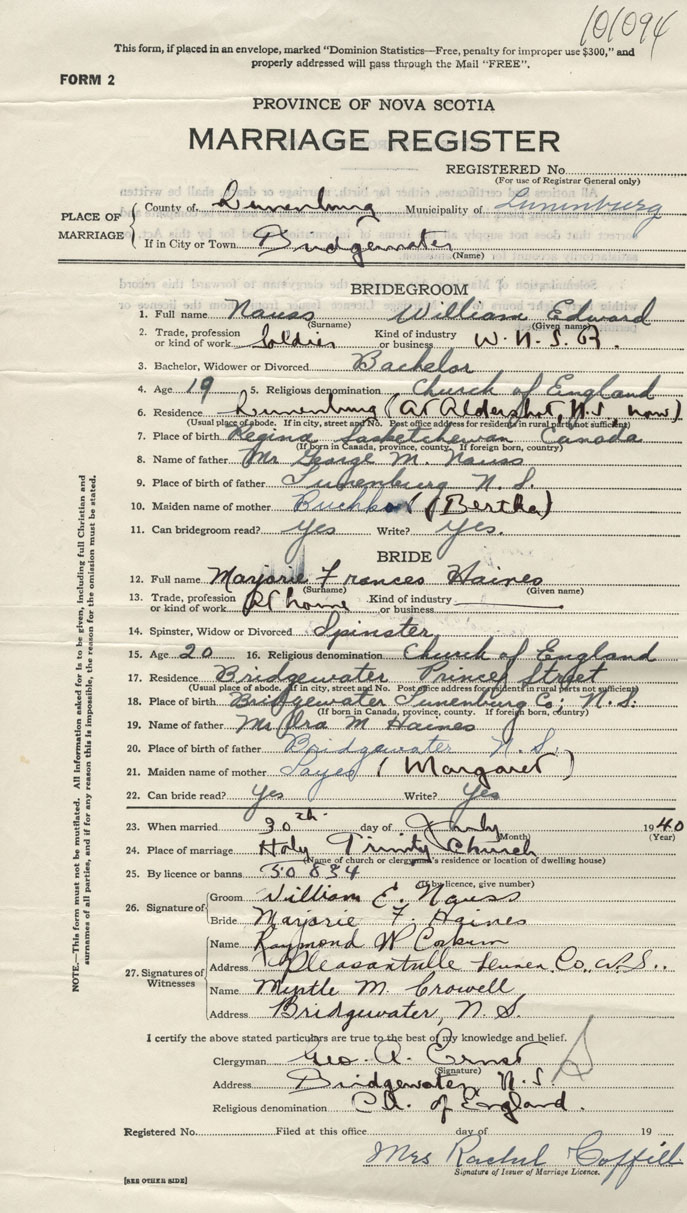 101094
This form, if placed in an envelope, marked "Dominion Statistics—Free, penalty for improper use $300," and
properly addressed will pass through the Mail "FREE".
FORM 2
PROVINCE OF NOVA SCOTIA
MARRIAGE REGISTER
REGISTERED No.
(For use of Registrar General only)
PLACE OF MARRIAGE
County of Lunenburg Municipality of Lunenburg
If in City or Town Bridgewater
(Name)
BRIDEGROOM
1. Full name Nauss William Edward
(Surname) (Given name)
2. Trade, profession or kind of work Soldier Kind of industry or business W. N. S. R.
3. Bachelor, Widower or Divorced Bachelor
4. Age 19 5. Religious denomination Church of England
6. Residence Lunenburg (At Aldershot, N.S., now)
(Usual place of abode. If in city, street and No. Post office address for residents in rural parts not sufficient)
7. Place of birth Regina Sasketchewan Canada
(If born in Canada, province, county. If foreign born, country)
8. Name of father Mr George M. Nauss
9. Place of birth of father Lunenburg N. S.
10. Maiden name of mother (Bertha)
11. Can bridegroom read? yes Write? yes.
BRIDE
12. Full name Marjorie Frances Haines
(Surname) (Given name)
13. Trade, profession or kind of work At home Kind of industry or business
14. Spinster, Widow or Divorced Spinster
15. Age 20 16. Religious denomination Church of England
17. Residence Bridgewater Princes Street
(Usual place of abode. If in city, street and No. Post office address for residents in rural parts not sufficient)
18. Place of birth Bridgewater Lunenburg Co; N. S.
(If born in Canada, province, county. If foreign born, country)
19. Name of father Mr Ora M Haines
20. Place of birth of father Bridgewater N. S.
21. Maiden name of mother (Margaret)
22. Can bride read? Yes Write? Yes
23. When married 30th day of July 1940
(Month) (Year)
24. Place of marriage Holy Trinity Church
(Name of church or clergyman's residence or location of dwelling house)
25. By licence or banns 50834
(If by licence, give number)
26. Signature of
Groom William E. Nauss
Bride Marjorie F. Haines
27. Signatures of Witnesses
Name Raymond W
Address Pleasantville Lunen. Co., N.S..
Name Myrtle M. Crowell
Address Bridgewater, N. S.
I certify the above stated particulars are true to the best of my knowledge and belief.
Clergyman Geo. A. Ernst
(Signature)
Address Bridgewater, N. S.
Religious denomination Ch. of England.
Registered No. Filed at this office day of 19
Mrs Rachel Coffill
Signature of Issuer of Marriage Licence.
[SEE OTHER SIDE]
NOTE.—This form must not be mutilated. All information asked for is to be given, including full Christian and
surnames of all parties, and if for any reason this is impossible, the reason for the omission must be stated.